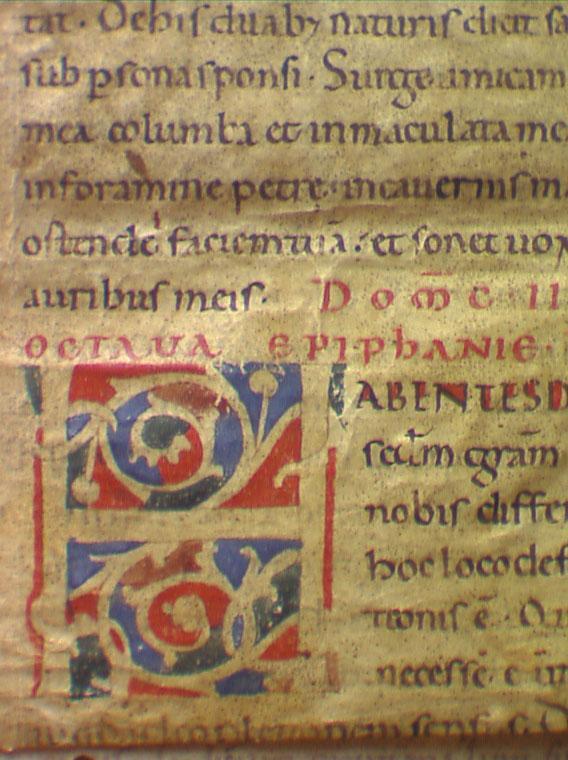 tat. De his duab; naturis dicit sa
sub p̱sona sponsi. Surge amica m
mea columba et inmaculata me
in foramine petre. in cauernis m
ostende faciem tuā. et sonet uox
auribus meis. DOM̄C II
OCTAVA EPIPHANIE.
HABENTES D
scd̄m grām
nobis diffe
hoc loco def
tionis ē.
necesse. e